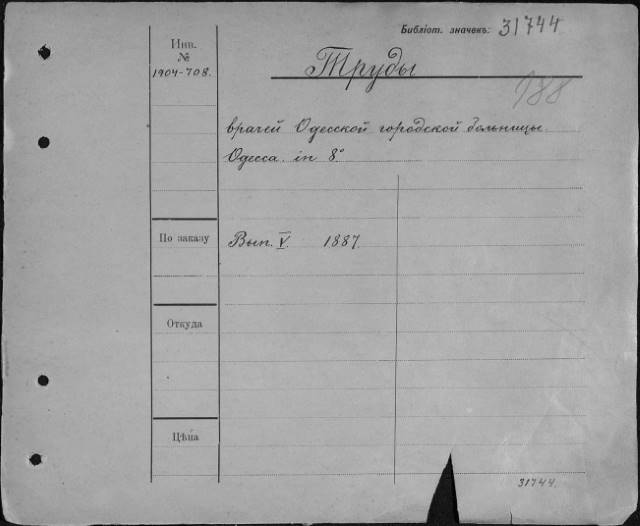 Библіот. значекъ: 31744
Инв.
№
1904-708.
Труды
188
врачей Одесской городской больницы.
Одесса. in 8°
По заказу
Вып. V. 1887.
Откуда
Цѣна
31744.